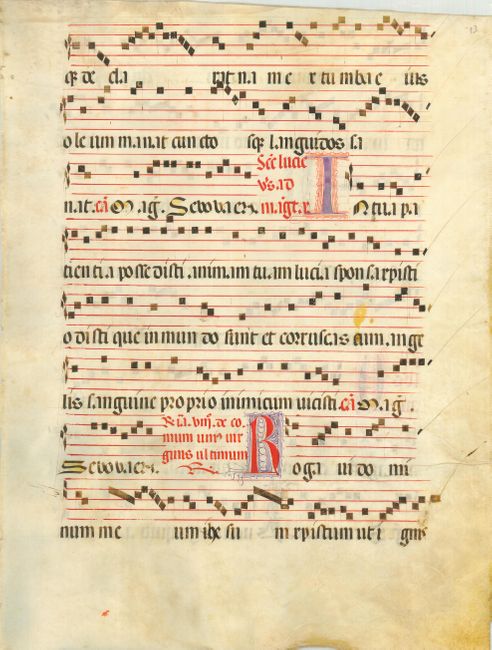 q; de cla rat na me x tumba e ius
oleum manat cuncto sq; languidos sa
Sce lucie
v's. ad
nat. ca. Mag. Seuouaen. magt. x. In tua pa
tientia possedisti animam tuam lucia sponsa xpisti
odisti que in mundo sunt et coruscas cum ange
lis sanguine proprio inimicum uicisti. ca. Mag.
de co
mum uni' uir
ginis ultimum
Seuouaen. Roga ui do mi
num me um ihesu m xpistum ut i gnis